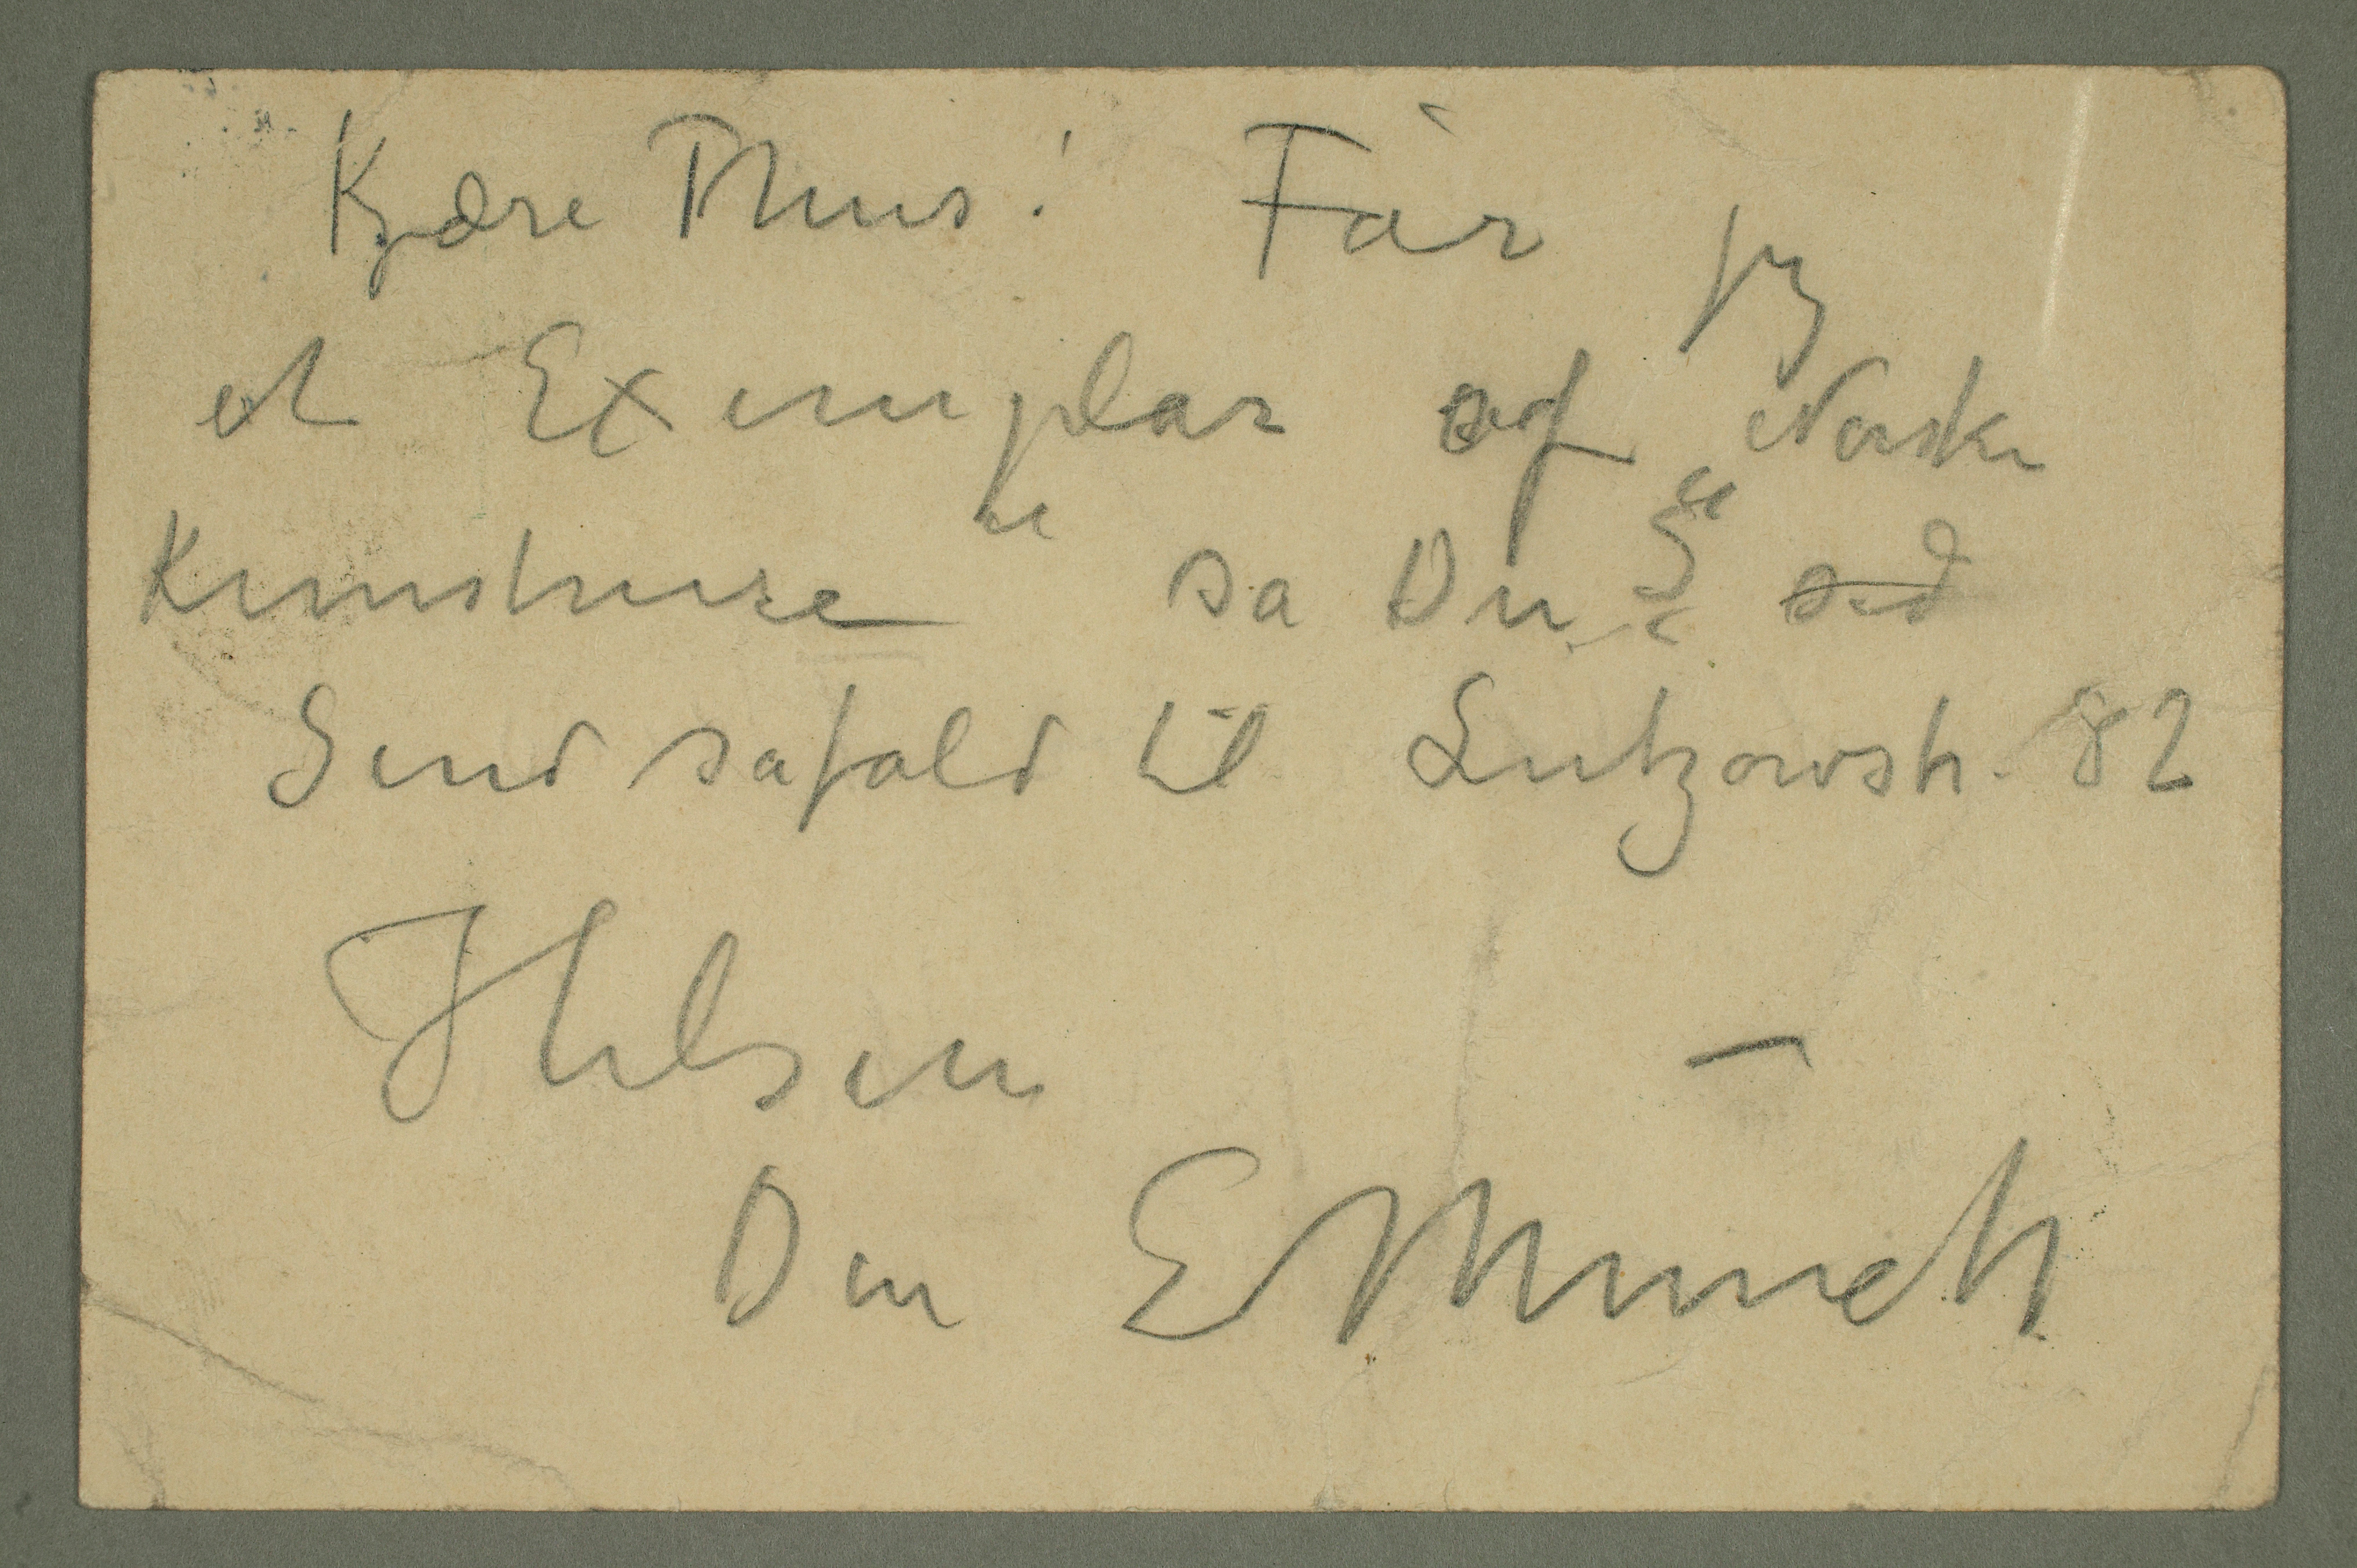 Kjære Thiis! Får jeg
et Exemplar af „Norske
Kunstnere“ sa Du
Send såfald til Lutzowstr. 82
Hilsen –
Din EMunch